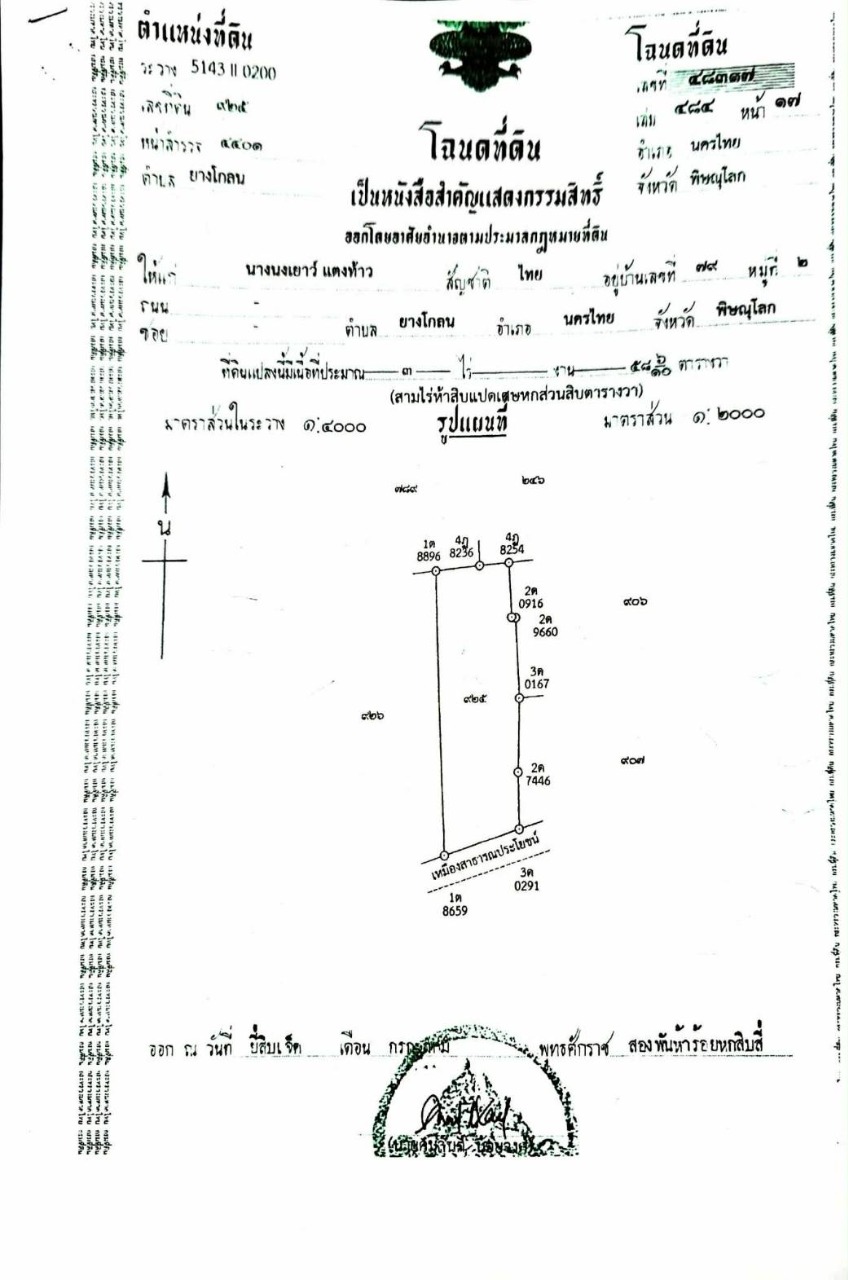 ตำแหน่งที่ดิน
โฉนดที่ดิน
ระวาง 5143 II 0200
เลขที่ ๔๘๓๑๗
เลขที่ดิน ๙๒๕
เล่ม ๔๘๔ หน้า ๑๗
หน้าสำรวจ ๔๔๐๑
อำเภอ นครไทย
ตำบล ยางโกลน
จังหวัด พิษณุโลก
โฉนดที่ดิน
เป็นหนังสือสำคัญแสดงกรรมสิทธิ์
ออกโดยอาศัยอำนาจตามประมวลกฎหมายที่ดิน
ให้แก่ นางนงเยาว์ แตงท้าว สัญชาติ ไทย อยู่บ้านเลขที่ ๗๙ หมู่ที่ ๒
ถนน -
ซอย - ตำบล ยางโกลน อำเภอ นครไทย จังหวัด พิษณุโลก
ที่ดินแปลงนี้มีเนื้อที่ประมาณ ๓ ไร่ งาน ๕๘ ๖/๑๐ ตารางวา
(สามไร่ห้าสิบแปดเศษหกส่วนสิบตารางวา)
มาตราส่วนในระวาง ๑:๔๐๐๐ รูปแผนที่ มาตราส่วน ๑: ๒๐๐๐
๗๘๙ ๒๔๖
น
1ด 8896
4ฎ 8236
4ฎ 8254
2ด 0916
๙๐๖
2ด 9660
3ด 0167
๙๒๕
๙๒๖
๙๐๗
2ด 7446
เหมืองสาธารณประโยชน์
3ด 0291
1ด 8659
ออก ณ วันที่ ยี่สิบเจ็ด เดือน กรกฎาคม พุทธศักราช สองพันห้าร้อยหกสิบสี่